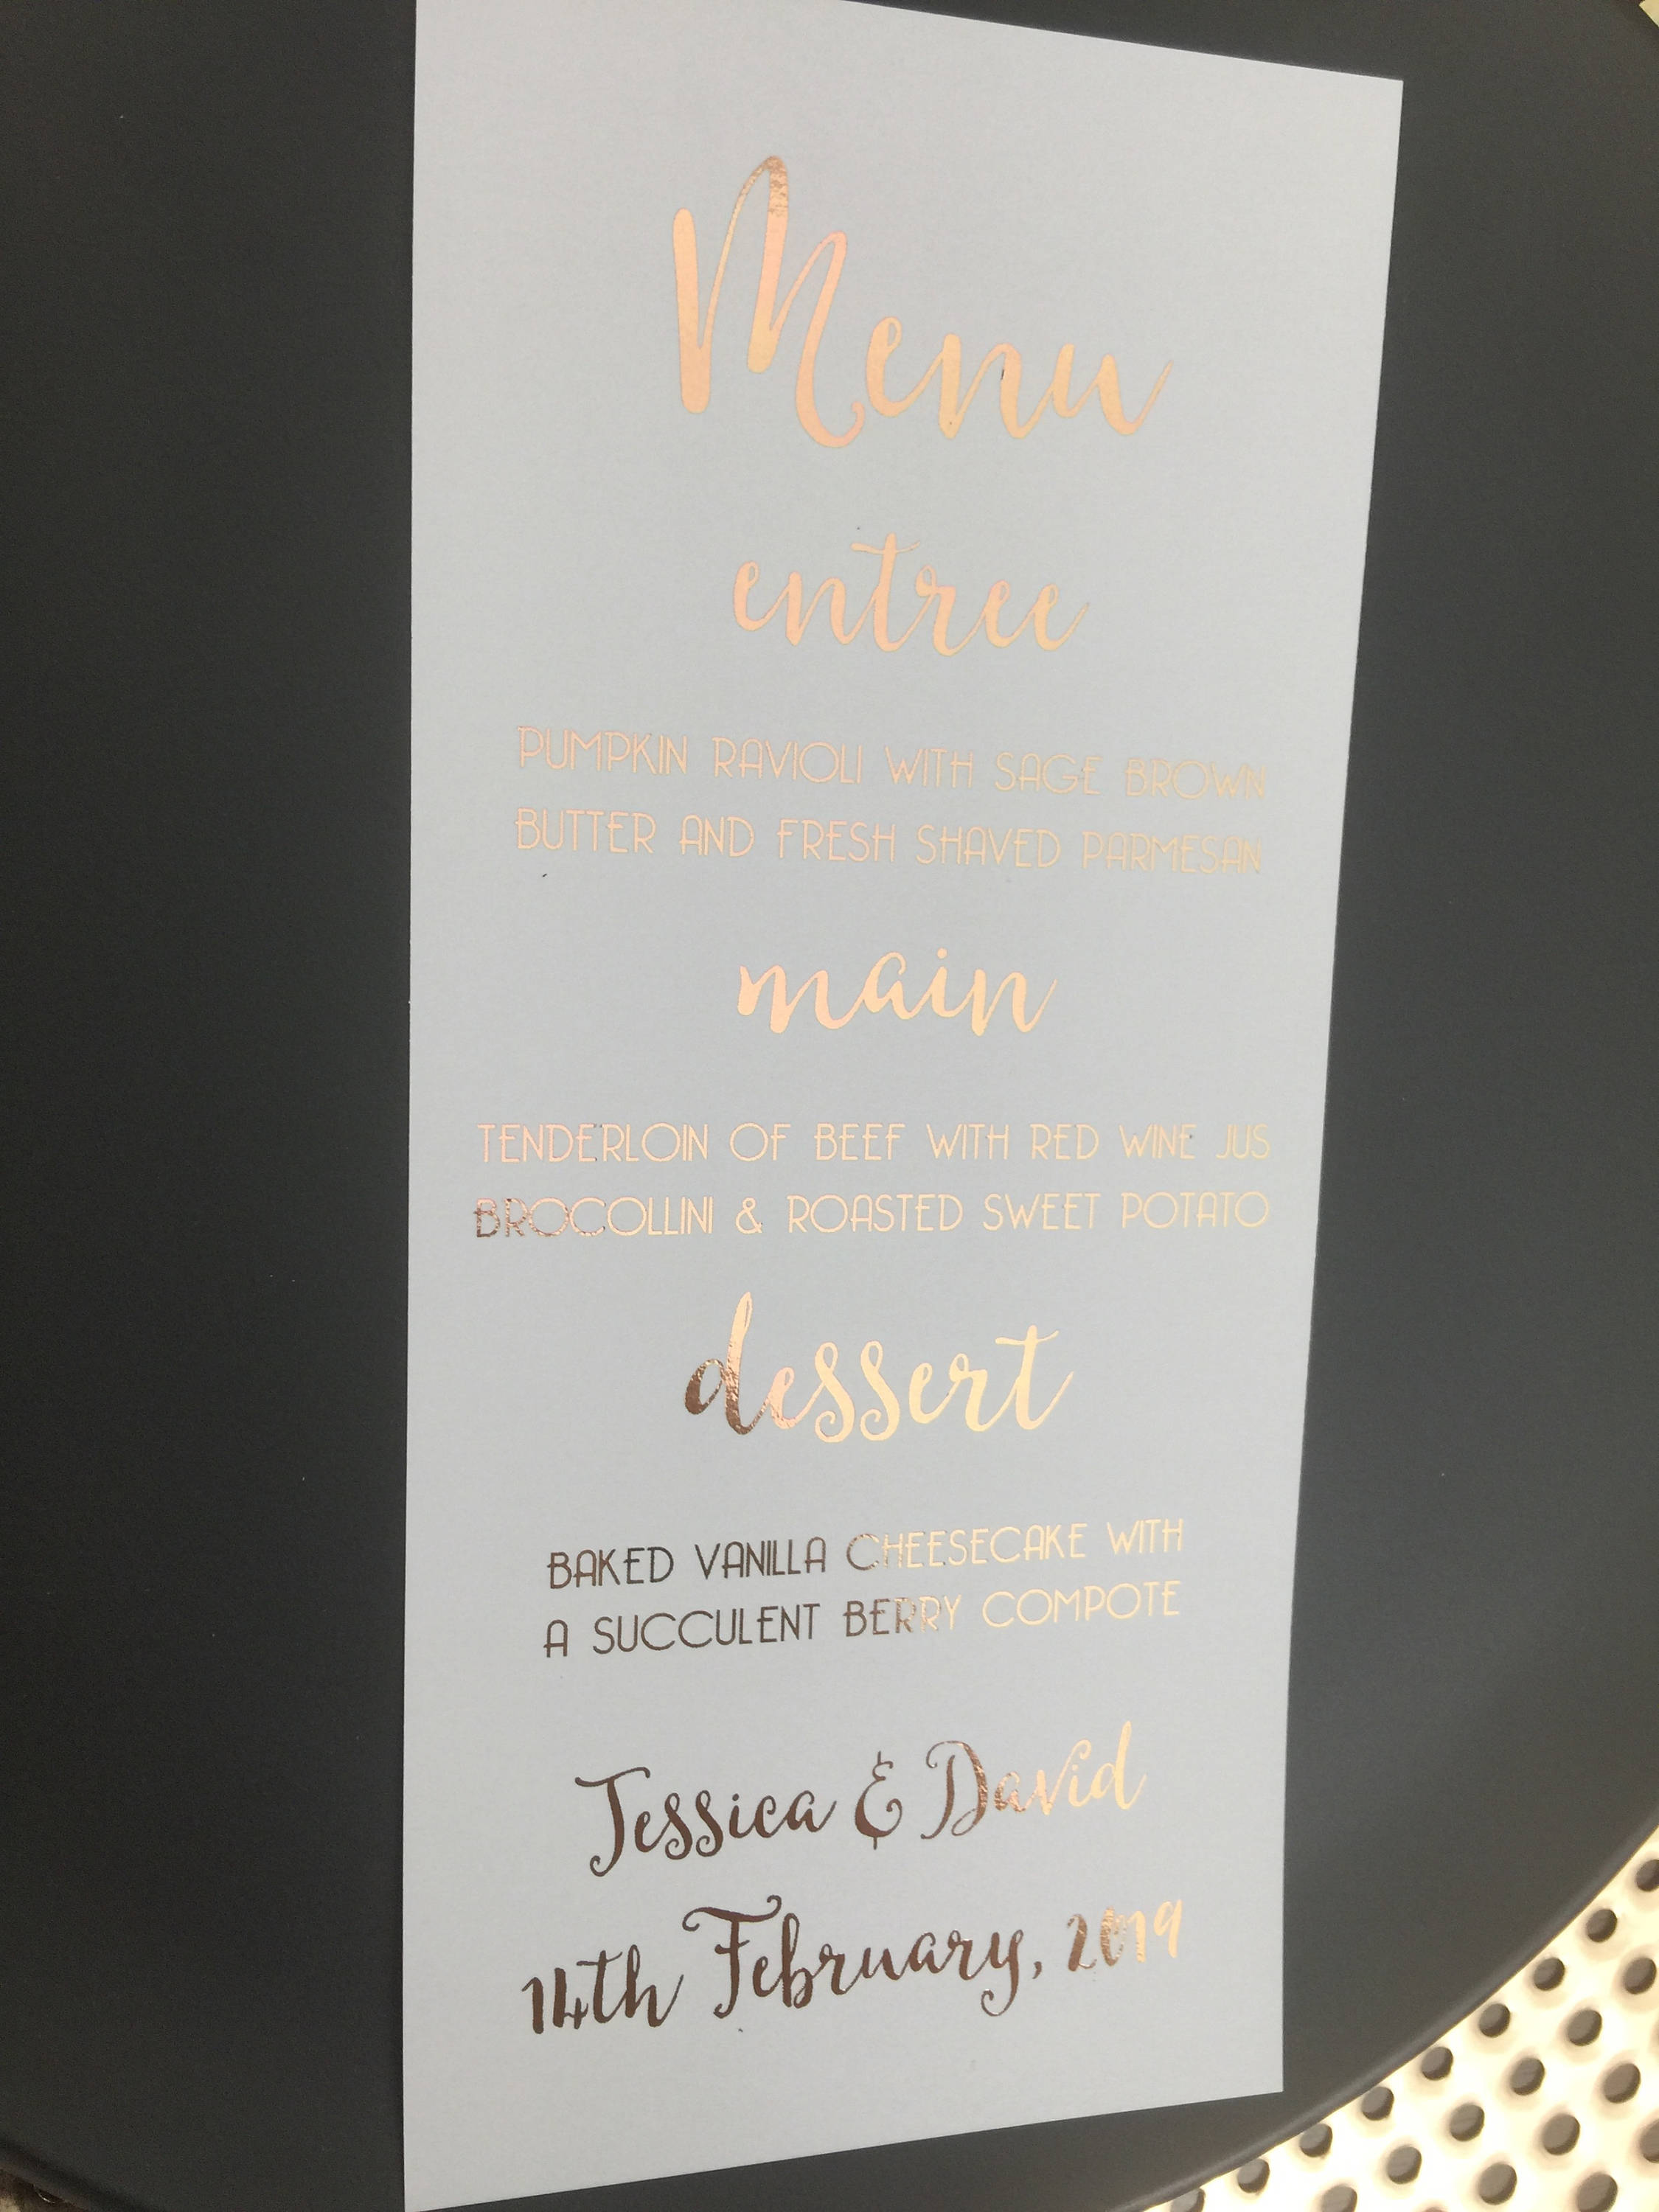 Menu
entree
PUMPKIN RAVIOLI WITH SAGE BROWN
BUTTER AND FRESH SHAVED PARMESAN
main
TENDERLOIN OF BEEF WITH RED WINE JUS
BROCOLLINI & ROASTED SWEET POTATO
dessert
BAKED VANILLA CHEESECAKE WITH
A SUCCULENT BERRY COMPOTE
Jessica & David
14th February, 2019